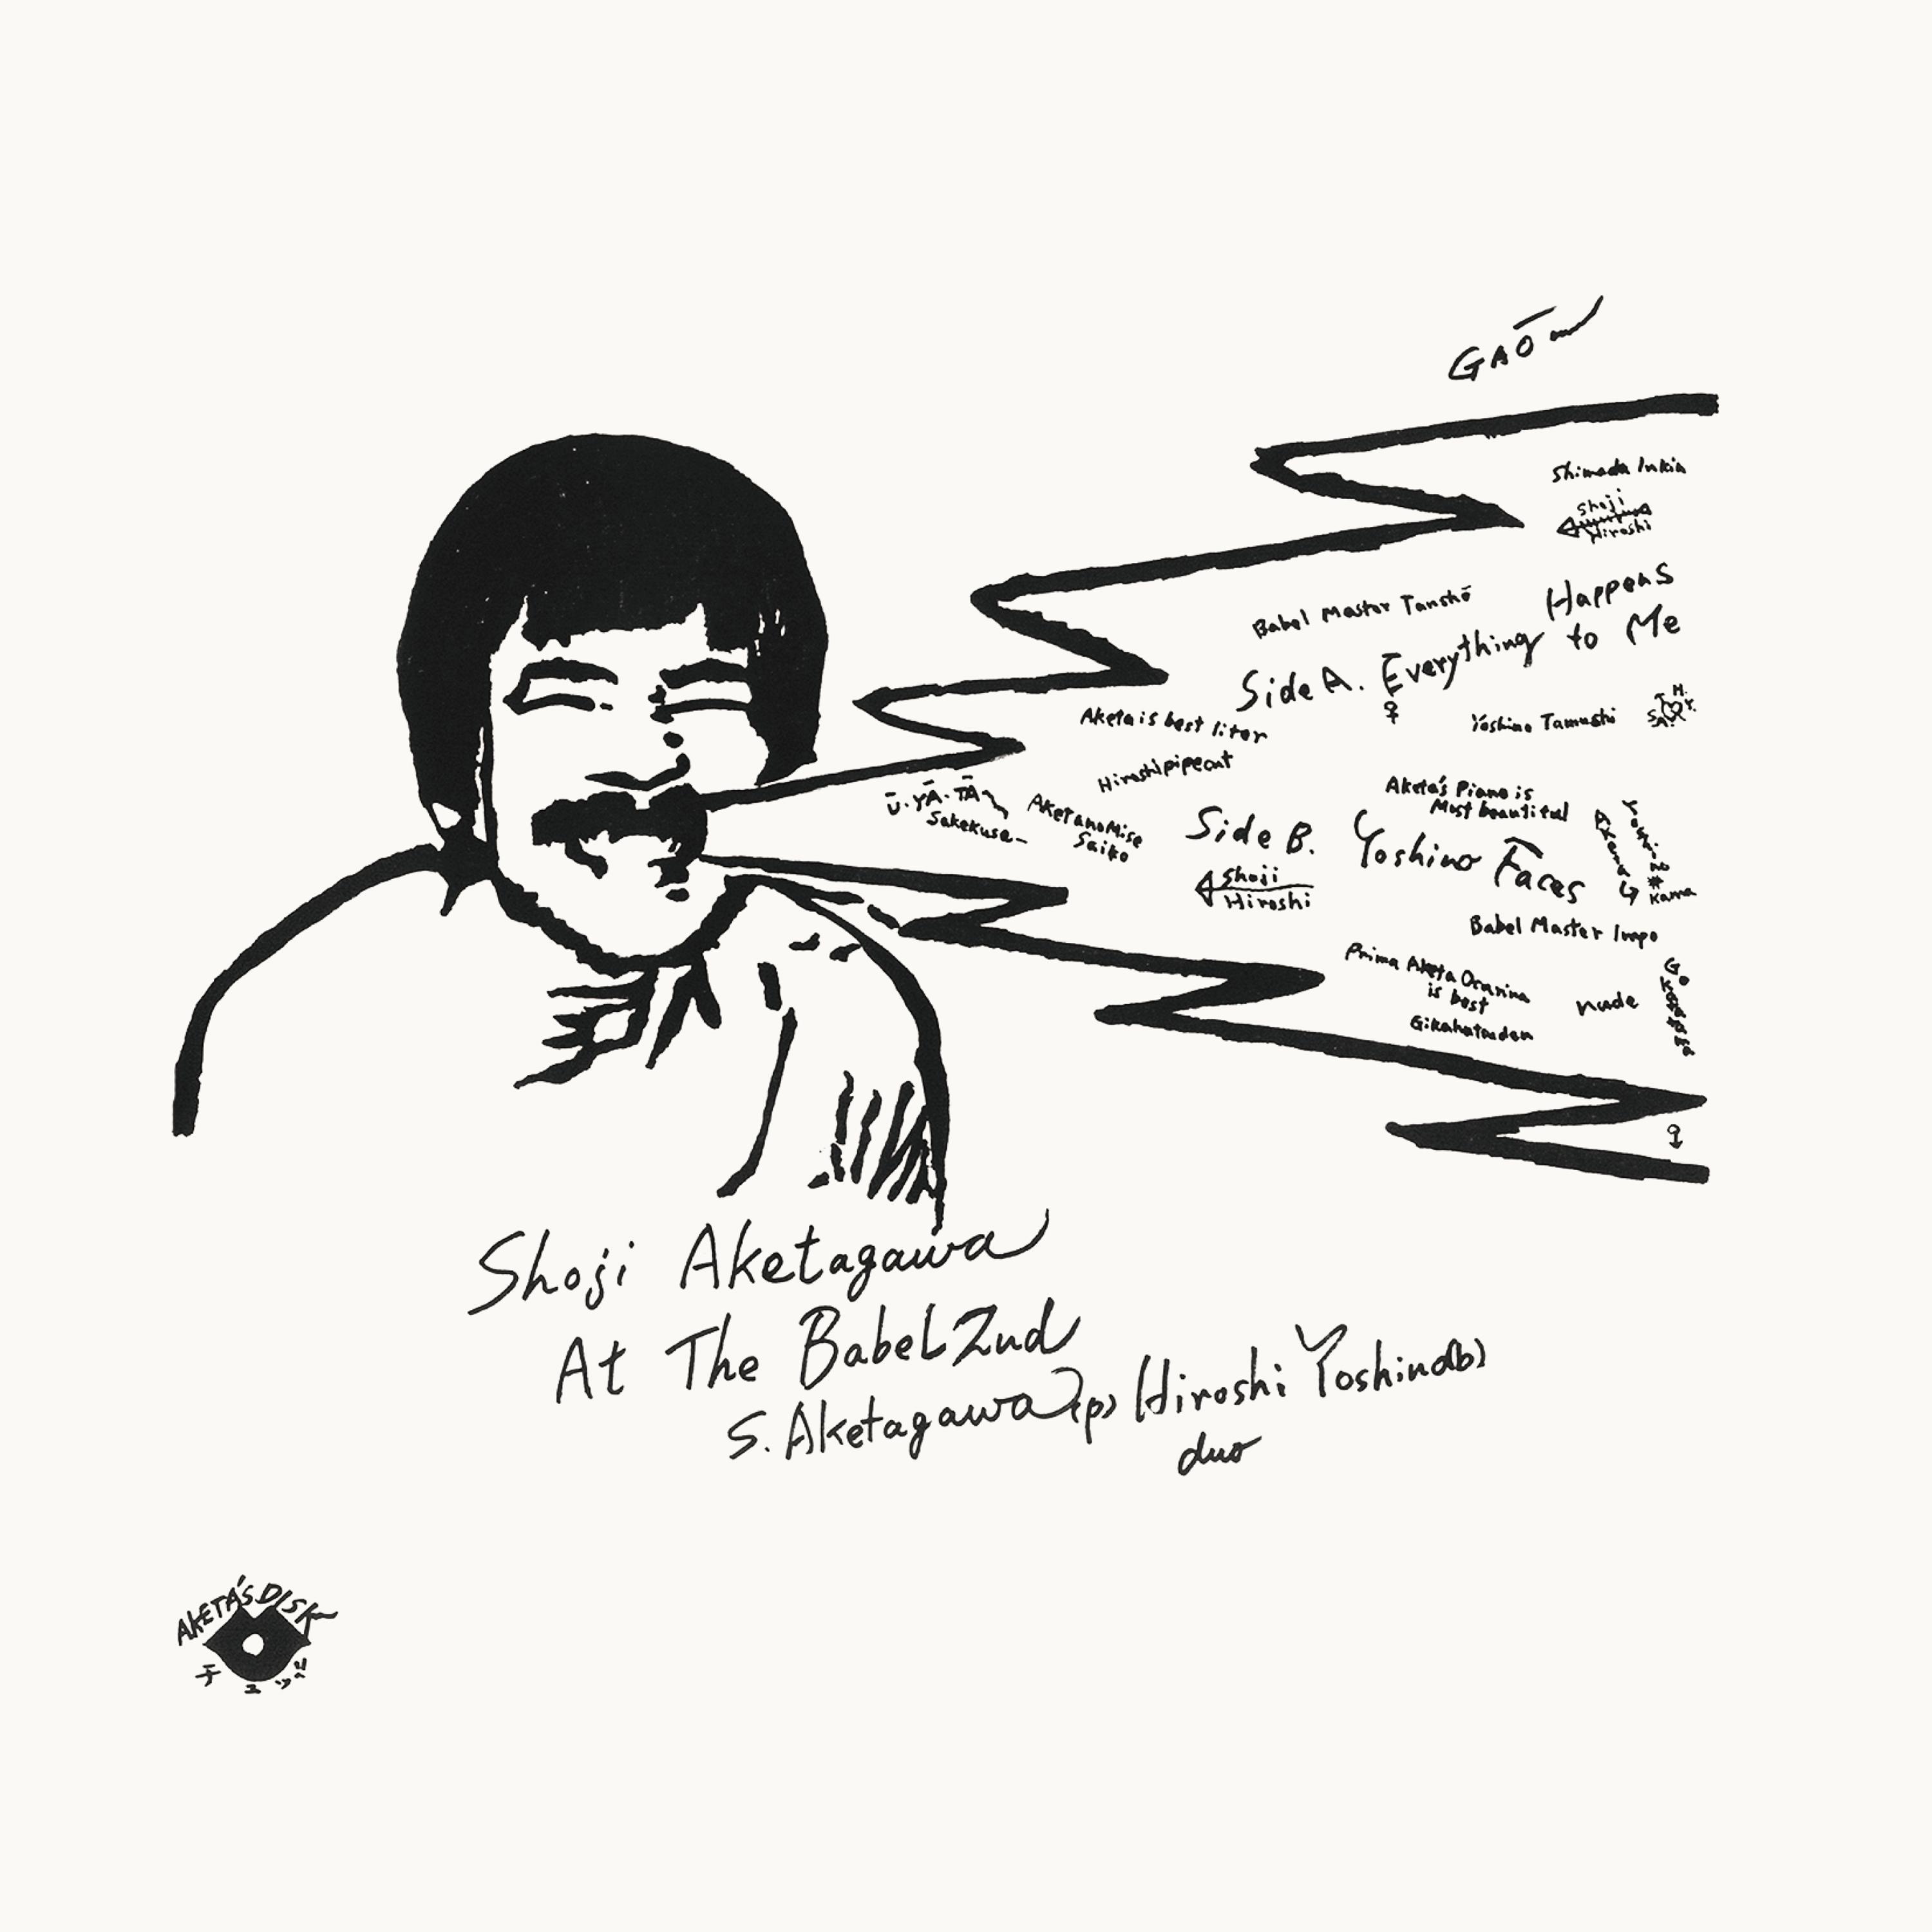 GAŌ
Shimada Inkin
Shoji
Hiroshi
Babel Master Tanshō
Happens
Side A. Everything to Me
Aketa is best liter
Yoshino Tamushi
H.
T Y.
S.A.
Hiroshi pipe cut
Ū·YĀ·TĀ
Sakekuse
Aketanomise
Saiko
Aketa's Piano is
Most beautiful
Side B. Yoshino Faces
Aketa
Yoshino
#
Kama
Shoji
Hiroshi
Babel Master Impo
Prima Aketa Ocarina
is best
nude
Gikahatauden
Shoji Aketagawa
At The Babel 2nd
S. Aketagawa (p) Hiroshi Yoshino (b)
duo
AKETA'S DISK